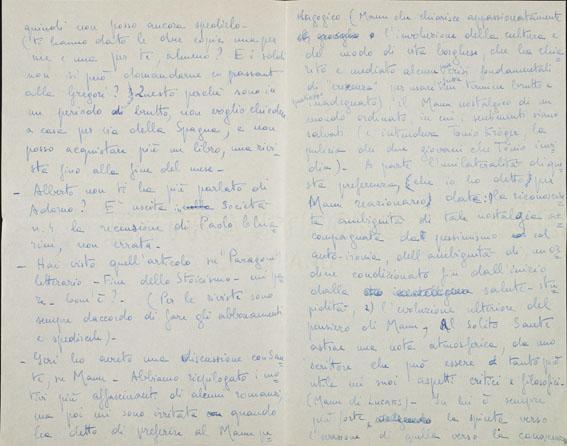 quindi non posso ancora spedirlo.
(ti hanno dato le due copie una per
me e una per te, almeno? E i soldi
non si può domandarne en passant
alla Gregori? Questo perché sono in
un periodo brutto, non voglio chiedere
a casa per via della Spagna, e non
posso acquistare più un libro, una rivi-
sta fino alla fine del mese.
- Alberto non ti ha più parlato di
Adorno? È uscita Società
n. 4 la recensione di Paolo Chia-
rini, non errata.
- Hai visto quell'articolo su "Paragone"
letterario - Fine dello Stoicismo - mi pa-
re - com'è? - (Per le riviste sono
sempre d'accordo di fare gli abbonamenti
e spedirle) -
- Ieri ho avuto una discussione con San-
te, su Mann - Abbiamo riepilogato i mo-
tivi più affascinanti di alcuni romanzi,
ma poi mi sono irritata quando
ha detto di preferire al Mann pe-
dagogico (Mann che chiarisce appassionatamente
l'evoluzione della cultura e
del modo di vita borghese, che ha chia-
rito e mediato alcune crisi fondamentali
di "crescenza" per usare un termine brutto e
inadeguato) il Mann nostalgico di un
mondo ordinato in cui i sentimenti siano
salvati (e intendeva Tonio Kröger, la
pulizia dei due giovani che Tonio invi-
dia) - A parte l'unilateralità di que-
sta preferenza, (che io ho detto) per
Mann reazionario, data la riconosciu-
ta ambiguità di tale nostalgia ac-
compagnata dal pessimismo ed
auto-ironia, dell'ambiguità di
condizionato fin dall'inizio
dalla salute-stu-
pidità, 2) l'evoluzione ulteriore del
pensiero di Mann, Al solito Sante
astrae una nota atmosferica, da uno
scrittore che può essere tanto più
utile nei suoi aspetti critici e filosofici -
(Mann di Lucàcs) - In lui è sempre
più forte la spinta verso
l'evasione di quella verso la conquista